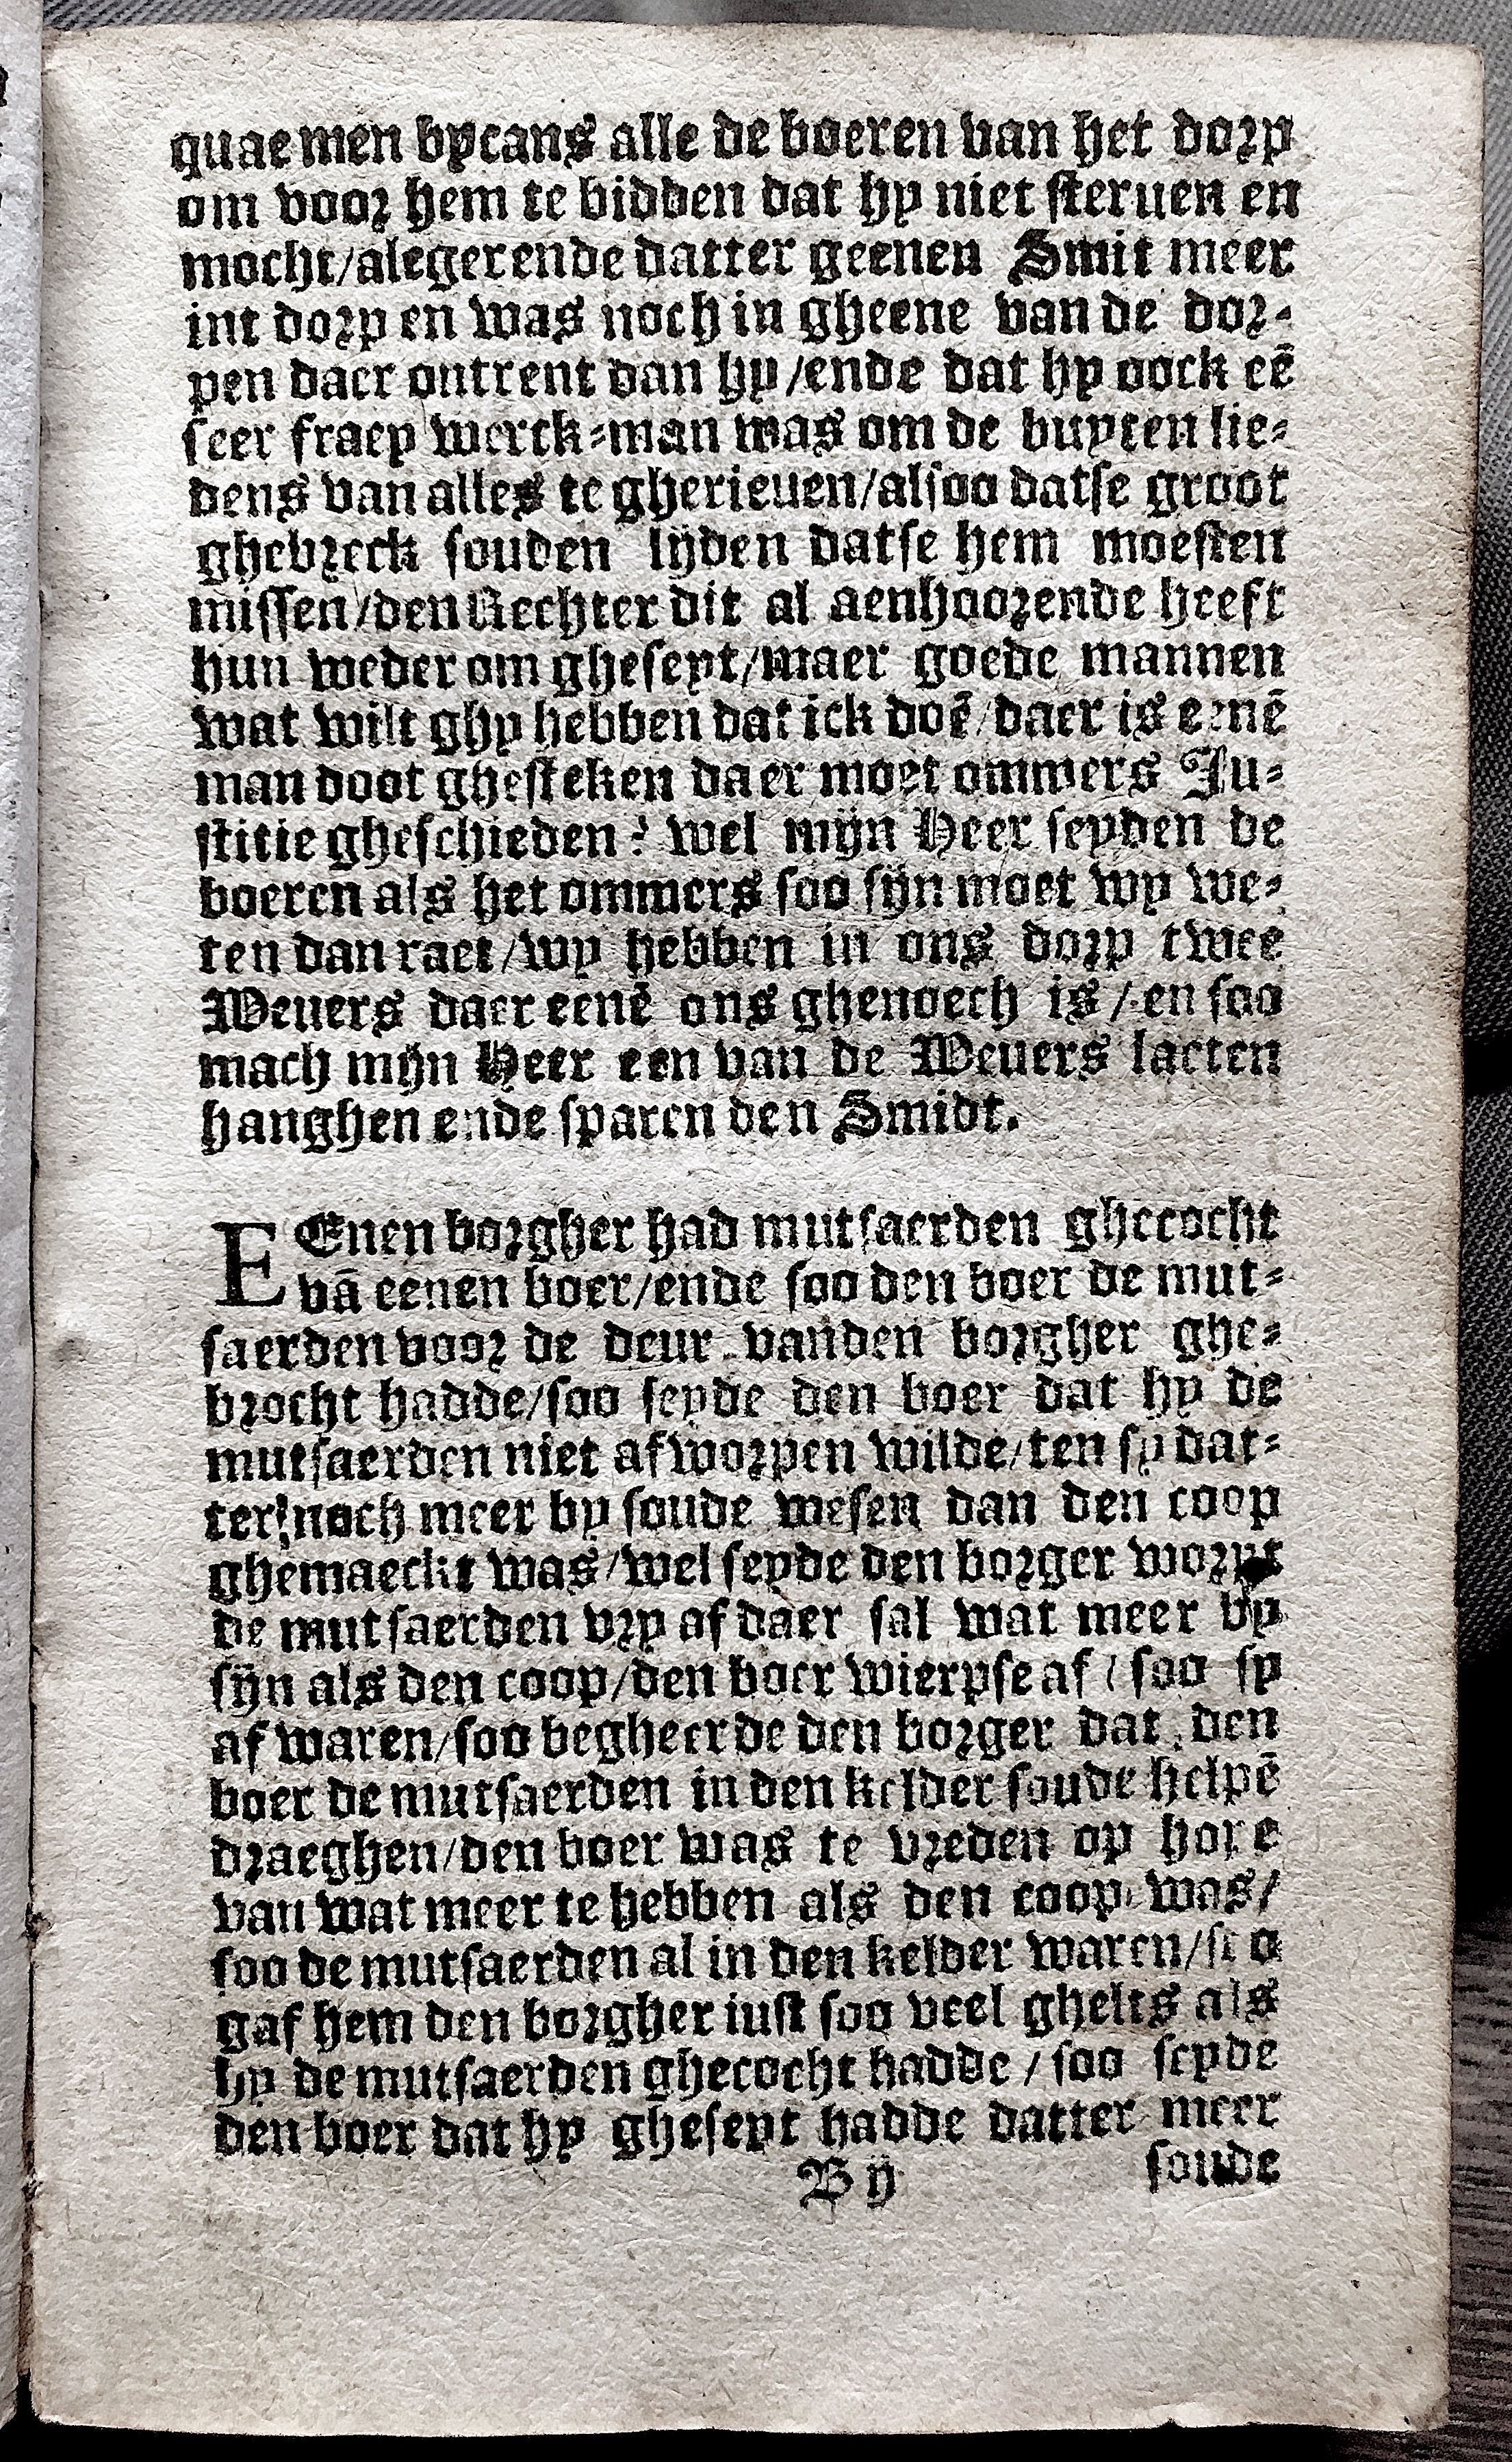 quaemen bycans alle de boeren van het dorp
om voor hem te bidden dat hy niet steruen en
mocht/alegerende datter geenen Smit meer
int dorp en was noch in gheene van de dor-
pen daer ontrent dan hy/ende dat hy oock eē
seer fraey werck-man was om de buyten lie-
dens van alles te gherieuen/alsoo datse groot
ghebreck souden lijden datse hem moesten
missen/den Rechter dit al aenhoorende heeft
hun weder om gheseyt/maer goede mannen
wat wilt ghy hebben dat ick doē/daer is eenē
man doot ghesteken daer moet ommers Ju-
stitie gheschieden? wel mijn Heer seyden de
boeren als het ommers soo sijn moet wy we-
ten dan raet/wy hebben in ons dorp twee
Weuers daer eenē ons ghenoech is/en soo
mach mijn Heer een van de Weuers laeten
hanghen ende sparen den Smidt.
EEnen borgher had mutsaerden ghecocht
vā eenen boer/ende soo den boer de mut-
saerden voor de deur vanden borgher ghe-
brocht hadde/soo seyde den boer dat hy de
mutsaerden niet afworpen wilde/ten sy dat-
ter noch meer by soude wesen dan den coop
ghemaeckt was/wel seyde den borger worpt
de mutsaerden vry af daer sal wat meer by
sijn als den coop/den boer wierpse af/soo sy
af waren/soo begheerde den borger dat den
boer de mutsaerden in den kelder soude helpē
draeghen/den boer was te vreden op hope
van wat meer te hebben als den coop was/
soo de mutsaerden al in den kelder waren/soo
gaf hem den borgher iust soo veel ghelts als
hy de mutsaerden ghecocht hadde/soo seyde
den boer dat hy gheseyt hadde datter meer
B ij soude